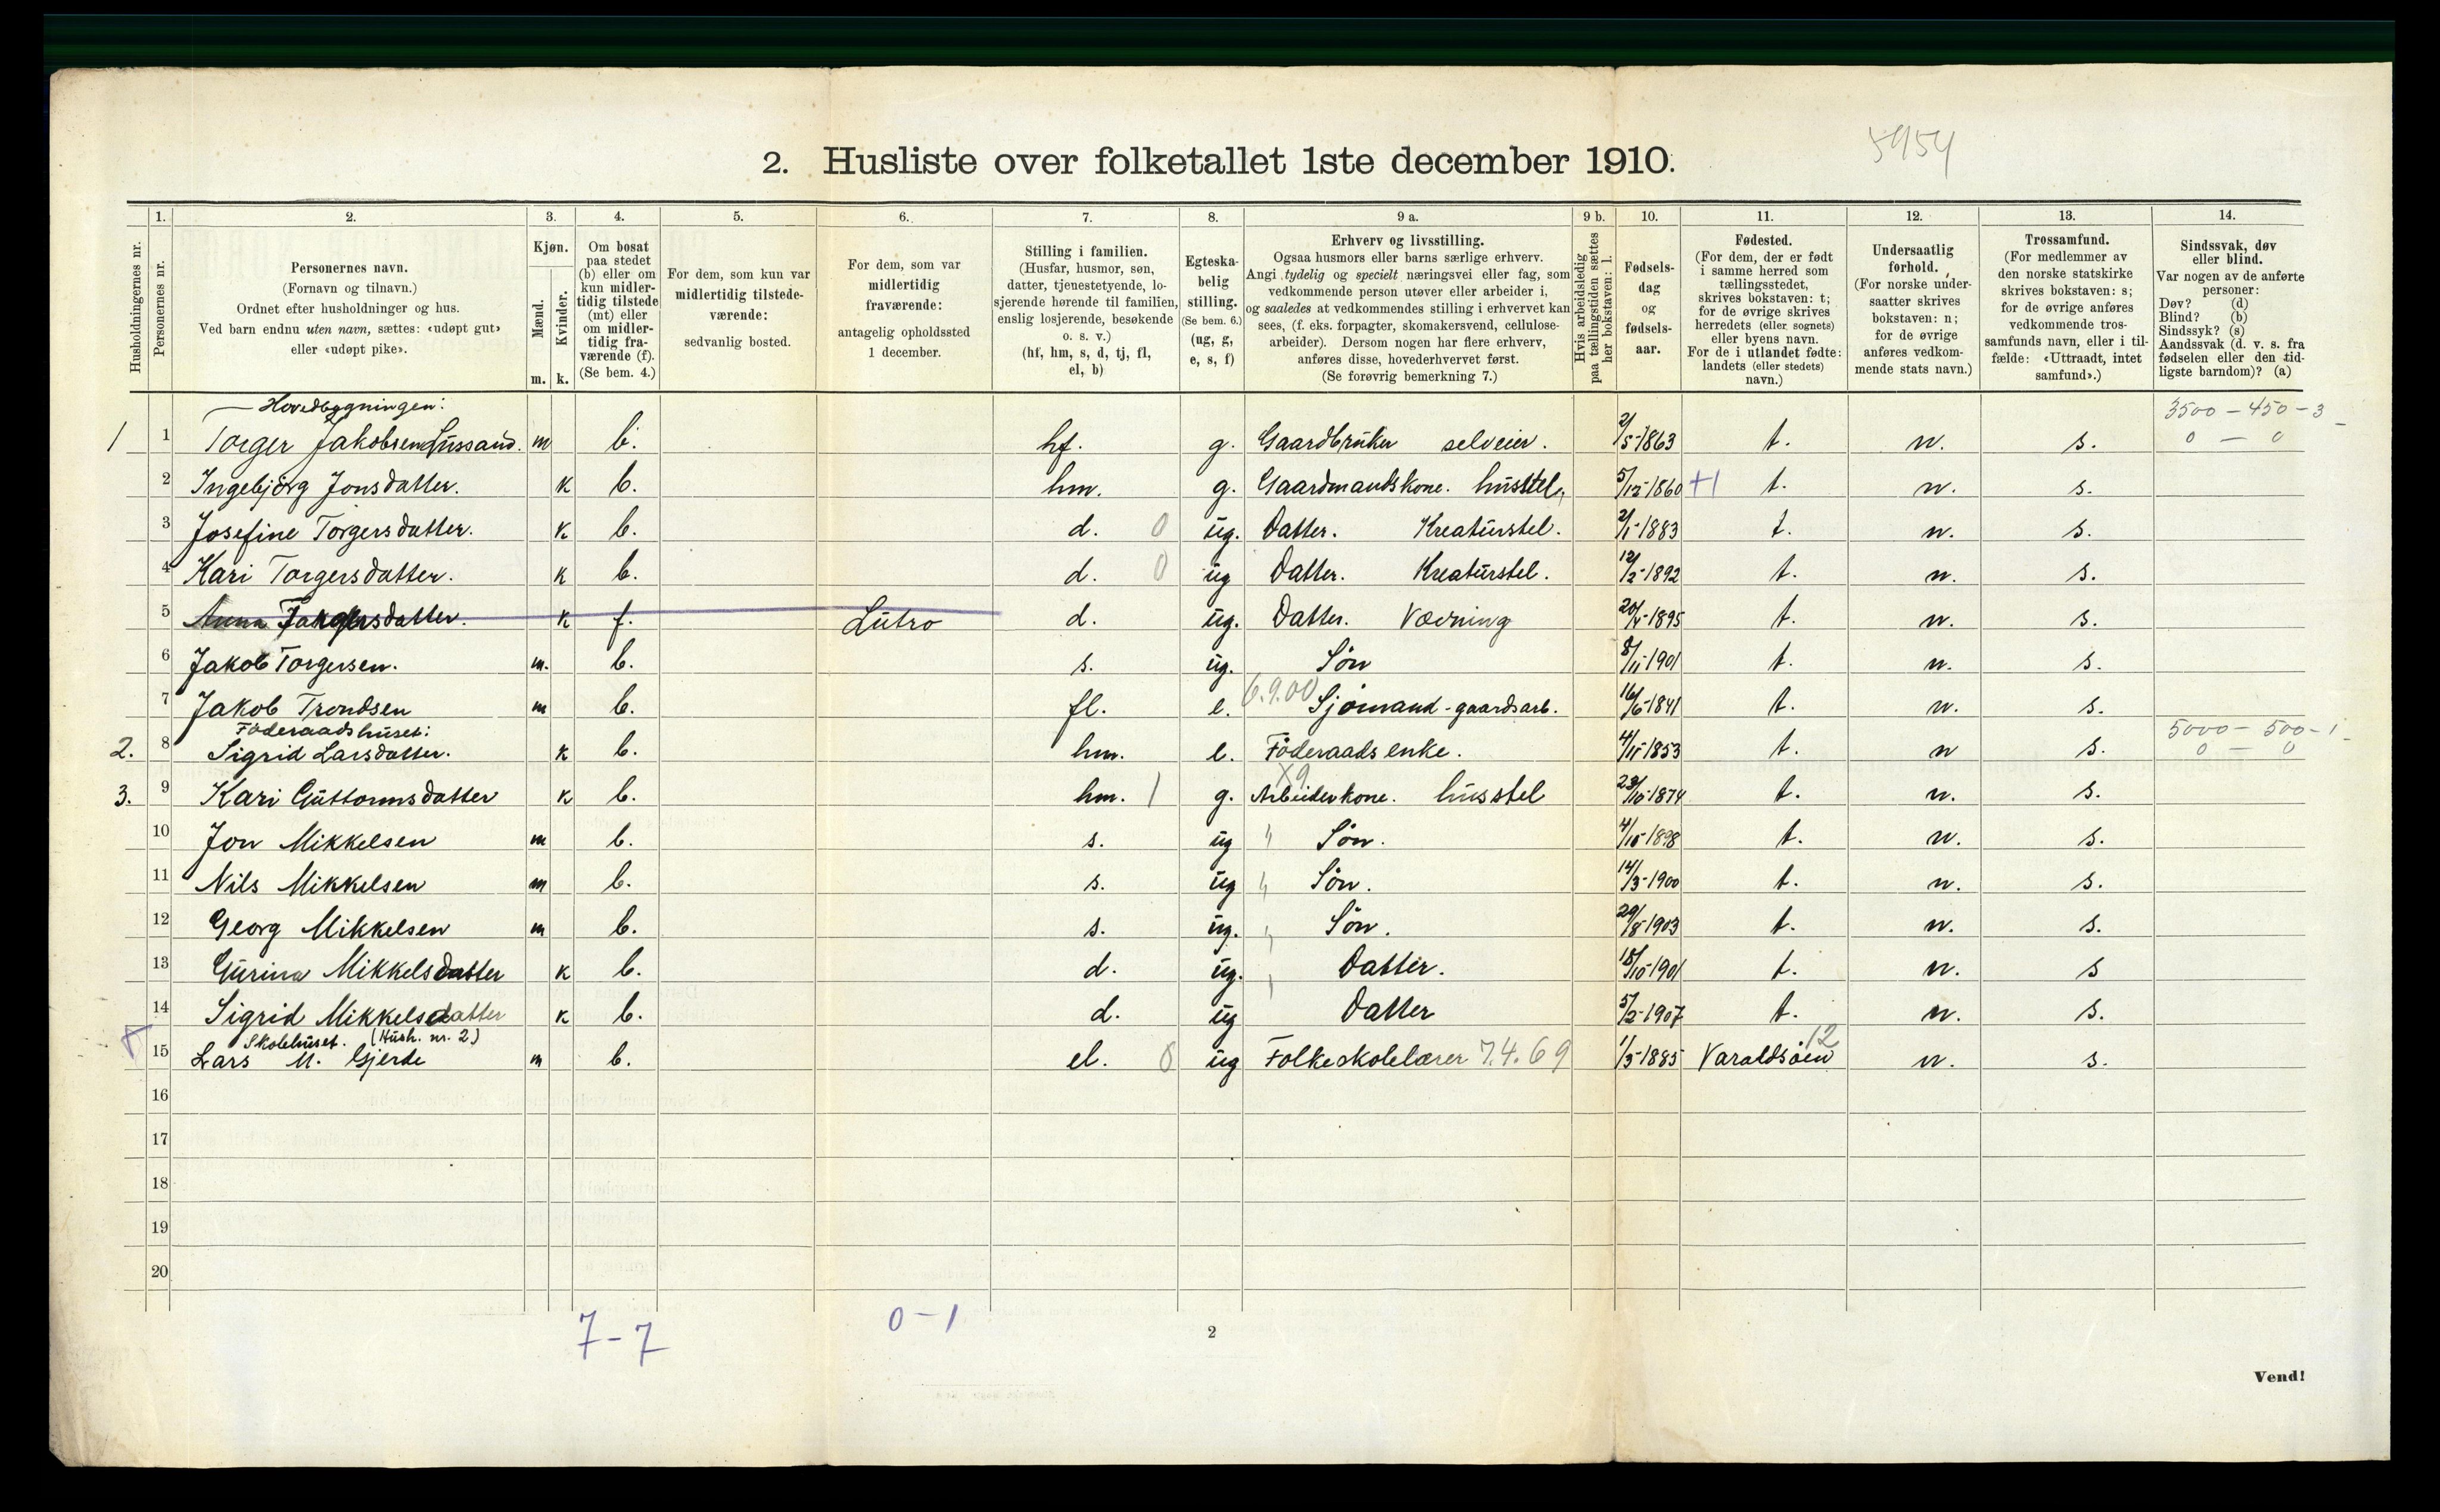 5954
2. Husliste over folketallet 1ste december 1910.
Husholdningernes nr.
1. Personernes nr.
2.
Personernes navn.
(Fornavn og tilnavn.)
Ordnet efter husholdninger og hus.
Ved barn endnu uten navn, sættes: «udøpt gut»
eller «udøpt pike».
3.
Kjøn.
Mænd. m.
Kvinder. k.
4.
Om bosat
paa stedet
(b) eller om
kun midler-
tidig tilstede
(mt) eller
om midler-
tidig fra-
værende (f).
(Se bem. 4.)
5.
For dem, som kun var
midlertidig tilstede-
værende:
sedvanlig bosted.
6.
For dem, som var
midlertidig
fraværende:
antagelig opholdssted
1 december.
7.
Stilling i familien.
(Husfar, husmor, søn,
datter, tjenestetyende, lo-
sjerende hørende til familien,
enslig losjerende, besøkende
o. s. v.)
(hf, hm, s, d, tj, fl,
el, b)
8.
Egteska-
belig
stilling.
(Se bem. 6.)
(ug, g,
e, s, f)
9 a.
Erhverv og livsstilling.
Ogsaa husmors eller barns særlige erhverv.
Angi tydelig og specielt næringsvei eller fag, som
vedkommende person utøver eller arbeider i,
og saaledes at vedkommendes stilling i erhvervet kan
sees, (f. eks. forpagter, skomakersvend, cellulose-
arbeider). Dersom nogen har flere erhverv,
anføres disse, hovederhvervet først.
(Se forøvrig bemerkning 7.)
9 b.
Hvis arbeidsledig
paa tællingstiden sættes
her bokstaven: l.
10.
Fødsels-
dag
og
fødsels-
aar.
11.
Fødested.
(For dem, der er født
i samme herred som
tællingsstedet,
skrives bokstaven: t;
for de øvrige skrives
herredets (eller sognets)
eller byens navn.
For de i utlandet fødte:
landets (eller stedets)
navn.)
12.
Undersaatlig
forhold.
(For norske under-
saatter skrives
bokstaven: n;
for de øvrige
anføres vedkom-
mende stats navn.)
13.
Trossamfund.
(For medlemmer av
den norske statskirke
skrives bokstaven: s;
for de øvrige anføres
vedkommende tros-
samfunds navn, eller i til-
fælde: «Uttraadt, intet
samfund».)
14.
Sindssvak, døv
eller blind.
Var nogen av de anførte
personer:
Døv? (d)
Blind? (b)
Sindssyk? (s)
Aandssvak (d. v. s. fra
fødselen eller den tid-
ligste barndom)? (a)
Hovedbygningen: 3500 - 450 - 3
1 1 Torger Jakobsen m b. hf. g. Gaardbruker selveier. 2/5-1863 t. n. s. 0 - 0
2 Ingebjörg Jonsdatter. k b. hm. g. Gaardmandskone. husstel, 5/12-1860 +1 t. n. s.
3 Josefine Torgersdatter. k b. d. 0 ug. Datter. Kreaturstel. 2/1-1883 t. n. s.
4 Kari Torgersdatter. k b. d. 0 ug Datter. Kreaturstel. 12/2-1892 t. n. s.
5 Anna k f. Lutro d. ug. Datter. Vævning 1895 t. n. s.
6 Jakob Torgersen. m. b. s. ug. Sön 8/11-1901 t. n. s.
7 Jakob Trondsen m b. fl. e. 6.9.00 Sjömand - gaardsarb. 16/6-1841 t. n. s.
Föderaadshuset: 5000 - 500 - 1
2. 8 Sigrid Larsdatter. k b. hm. e. Föderaadsenke. 4/11-1853 t. n s. 0 - 0
X9
3. 9 Kari Guttormsdatter k b. hm. 1 g. Arbeiderkone. husstel 23/10-1874 t. n. s.
10 Jon Mikkelsen m b. s. ug " Sön. 4/10-1898 t. n. s.
11 Nils Mikkelsen m b. s. ug " Sön. 14/3-1900 t. n. s.
12 Georg Mikkelsen m b. s. ug. " Sön. 29/8-1903 t. n. s.
13 Gurina Mikkelsdatter k b. d. ug. " Datter. 18/10-1901 t. n. s
14 Sigrid Mikkelsdatter k b. d. ug Datter 5/2-1907 t. n. s.
Skolehuset. (Hush. nr. 2) 12
15 Lars M. Gjerde m b. el. 0 ug Folkeskolelærer 7.4.69 1/5-1885 Varaldsöen n. s.
16
17
18
19
20
7-7 0-1
2
Vend!